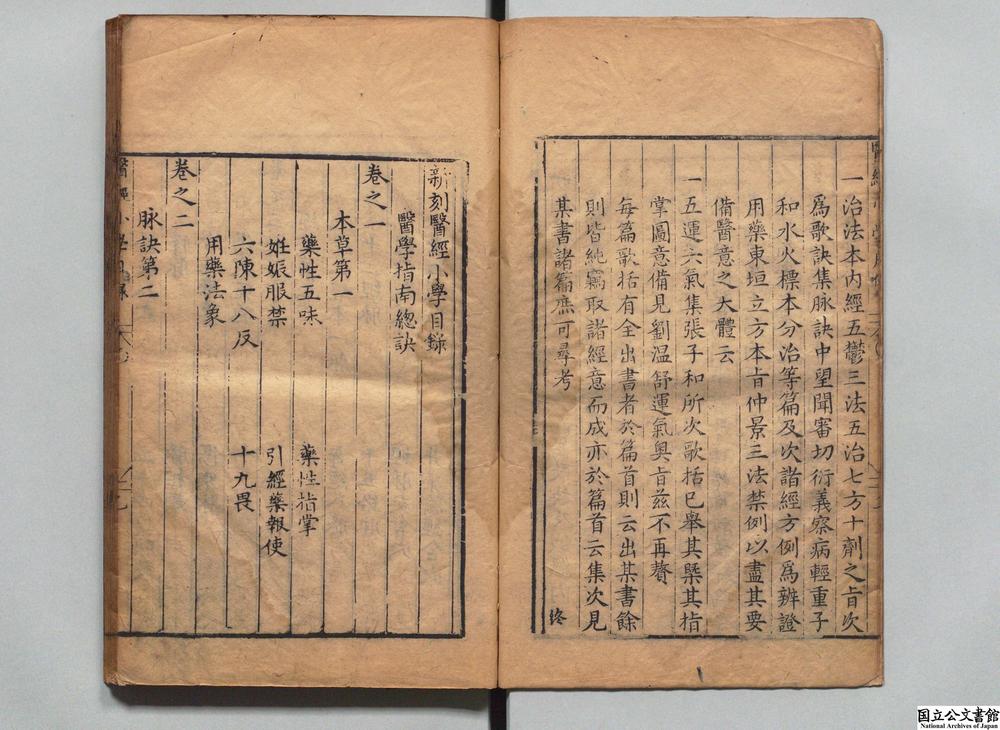 一治法本內經五鬱三法五治七方十劑之旨次
爲歌訣集脉訣中望聞審切衍義察病輕重子
和水火標本分治等篇及次諸經方例爲辨證
用藥東垣立方本旨仲景三法禁例以盡其要
備醫意之大體云
一五運六氣集張子和所次歌括已舉其槩其指
掌圖意備見劉温舒運氣奥旨兹不再贅
每篇歌括有全出書者於篇首則云出某書餘
則皆純竊取諸經意而成亦於篇首云集次見
某書諸篇庶可尋考
終
新刻醫經小學目錄
醫學指南總訣
卷之一
本草第一
藥性五味
藥性指掌
姙娠服禁
引經藥報使
六陳十八反
十九畏
用藥法象
卷之二
脉訣第二
醫經小學目錄
国立公文書館
National Archives of Japan